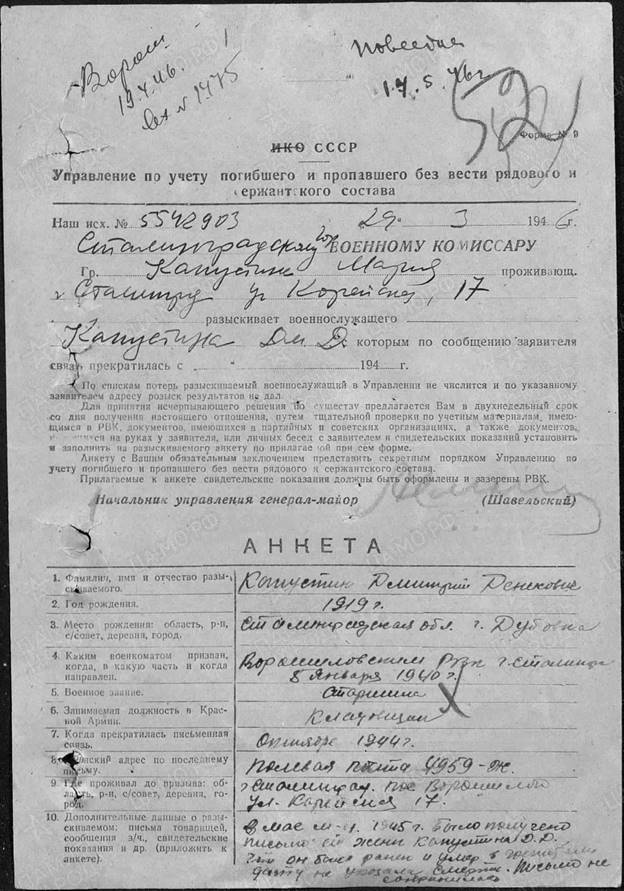 Ворош.
19.4.46.
вх N 1475
Повестка
17.5.46г
Форма № 9
НКО СССР
Управление по учету погибшего и пропавшего без вести рядового и
сержантского состава
Наш исх. № 5542903 29. 3 1946г.
Сталинградскому ВОЕННОМУ КОМИССАРУ
Гр. Капустина Мария проживающ.
г Сталинград ул Корейская, 17
разыскивает военнослужащего
Капустина Дм. Д. с которым по сообщению заявителя
связь прекратилась с " " 194 г.
По спискам потерь разыскиваемый военнослужащий в Управлении не числится и по указанному
заявителем адресу розыск результатов не дал.
Для принятия исчерпывающего решения по существу предлагается Вам в двухнедельный срок
со дня получения настоящего отношения, путем тщательной проверки по учетным материалам, имею-
щимся в РВК, документов, имеющихся в партийных и советских организациях, а также документов,
на руках у заявителя, или личных бесед с заявителем и свидетельских показаний установить
и заполнить на разыскиваемого анкету по прилагаемой при сем форме.
Анкету с Вашим обязательным заключением представить секретным порядком Управлению по
учету погибшего и пропавшего без вести рядового и сержантского состава.
Прилагаемые к анкете свидетельские показания должны быть оформлены и заверены РВК.
Начальник управления генерал-майор (Шавельский)
АНКЕТА
1. Фамилия, имя и отчество разы-
скиваемого.
Капустин Дмитрий
2. Год рождения.
1919 г.
3. Место рождения: область, р-н,
с/совет, деревня, город.
Сталинградская обл. г. Дубовка
4. Каким военкоматом призван,
когда, в какую часть и когда
направлен.
Ворошиловским РВК г. Сталинграда
8 января 1940 г.
5. Военное звание.
Старшина
6. Занимаемая должность в Крас-
ной Армии.
Кладовщик
7. Когда прекратилась письменная
связь.
Октябрь 1944 г.
8. Воинский адрес по последнему
письму.
Полевая почта 4959-ж.
9. Где проживал до призыва: об-
ласть, р-н, с/совет, деревня, го-
род.
г Сталинград. пос Ворошилова
ул. Корейская 17.
10. Дополнительные данные о разы-
скиваемом: письма товарищей,
сообщения з/ч., свидетельские
показания и др. (приложить к
анкете).
В мае м-ц. 1945 г. было получено
письмо жены Капустина Д.Д.
что он был ранен и умер в
дату не указали смерти. Письмо не
сохранилось